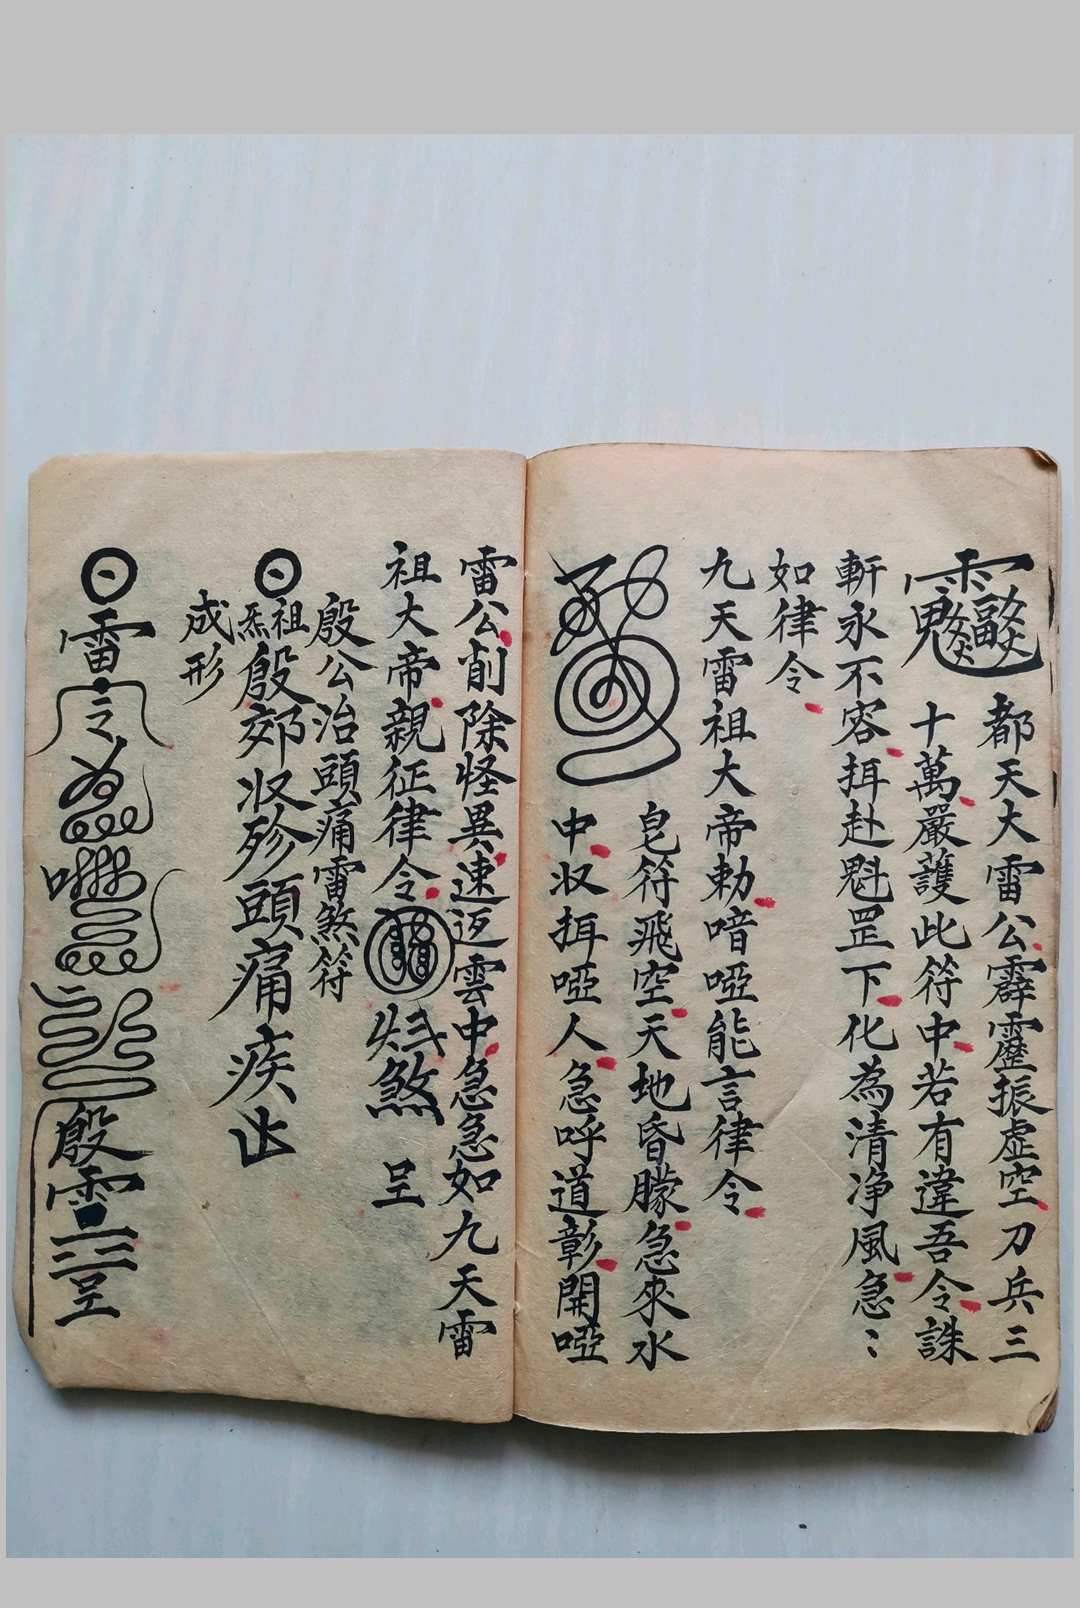 都天大雷公霹靂振虛空刀兵三
十萬嚴護此符中若有違吾令誅
斬永不容揖赴魁罡下化為清净風急〻
如律令
九天雷祖大帝勅喑啞能言律令
皂符飛空天地昏朦急來水
中収揖啞人急呼道彰開啞
雷公削除怪異速返雲中急急如九天雷
祖大帝親征律令 煞 呈
殷公治頭痛雷煞符
祖炁殷郊収殄頭痛疾止
成形
雷令 殷雷 呈